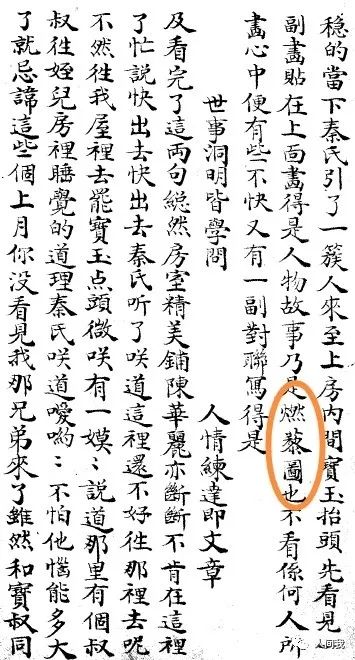 穩的當下秦氏引了一簇人來至上房內間寶玉抬頭先看見
副畫貼在上面畫得是人物故事乃是燃藜圖也不看係何人所
畫心中便有些不快又有一副對聯寫得是
世事洞明皆學問 人情練達即文章
及看完了這兩句縂然房室精美鋪陳華麗亦斷斷不肯在這裡
了忙說快出去快出去秦氏听了咲道這裡還不好徃那裡去呢
不然徃我屋裡去罷寶玉点頭微咲有一嫫〻說道那里有個叔
叔徃姪兒房裡睡覺的道理秦氏咲道噯喲〻不怕他惱能多大
了就忌諱這些個上月你没看見我那兄弟來了雖然和寶叔同
人间我